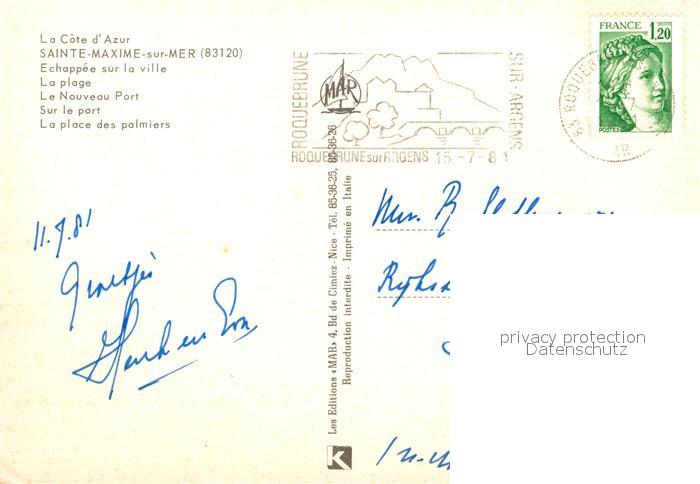 La Côte d'Azur
SAINTE-MAXIME-sur-MER (83120)
Echappée sur la ville
La plage
Le Nouveau Port
Sur le port
La place des palmiers
ROQUEBRUNE
SUR-ARGENS
MAR
ROQUEBRUNE sur ARGENS 15-7-81
FRANCE
1,20
POSTES
83 ROQUEBR
AR
11.7.81
Groetjes
Les Editions «MAR» 4, Bd de Cimiez-Nice - Tél. 85-36-25, 85-36-26
Reproduction interdite - Imprimé en Italie
K
privacy protection
Datenschutz